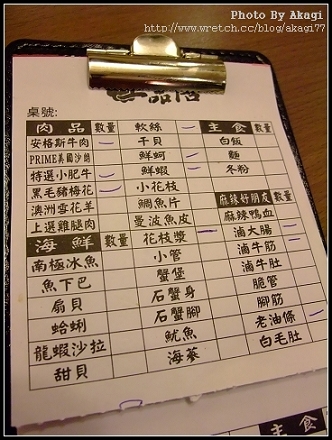 Photo By Akagi
http://www.wretch.cc/blog/akagi77
桌號:
肉品 數量 軟絲 主食 數量
安格斯牛肉 干貝 白飯
PRIME美國沙朗 鮮蚵 麵
特選小肥牛 鮮蝦 冬粉
黑毛豬梅花 小花枝
澳洲雪花羊 鯛魚片 麻辣好朋友 數量
上選雞腿肉 曼波魚皮 麻辣鴨血
海鮮 數量 花枝漿 滷大腸
南極冰魚 小管 滷牛筋
魚下巴 蟹堡 滷牛肚
扇貝 石蟹身 脆管
蛤蜊 石蟹腳 腳筋
龍蝦沙拉 魷魚 老油條
甜貝 海蔘 白毛肚
主食